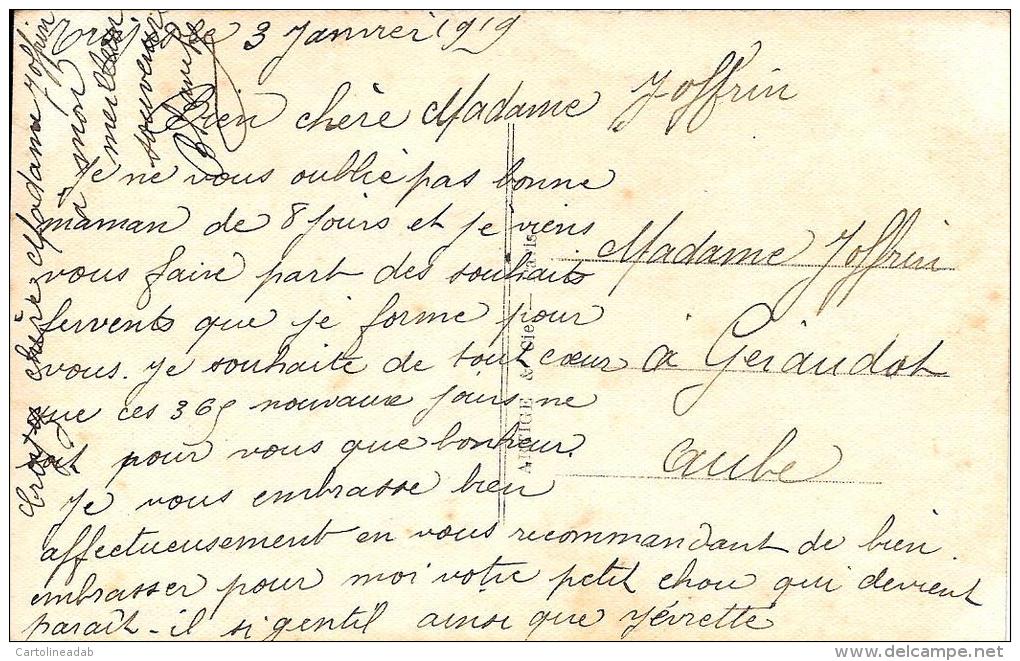 le 3 Janvier 1919
Bien chère Madame Joffrin
Je ne vous oublie pas bonne
maman de 8 jours et je viens
vous faire part des souhaits
fervents que je forme pour
vous. Je souhaite de tout cœur
que ces 365 nouvaux jours ne
soit pour vous que bonheur.
Je vous embrasse bien
affectueusement en vous recommandant de bien
embrasser pour moi votre petit chou qui devient
parait-il si gentil ainsi que Yévrette
chère Madame Joffrin
à mon
meilleur
souvenir
Madame Joffrin
à Géraudot
Aube
ARTIGE & Cie — Paris
© Cartolineadab
www.delcampe.net